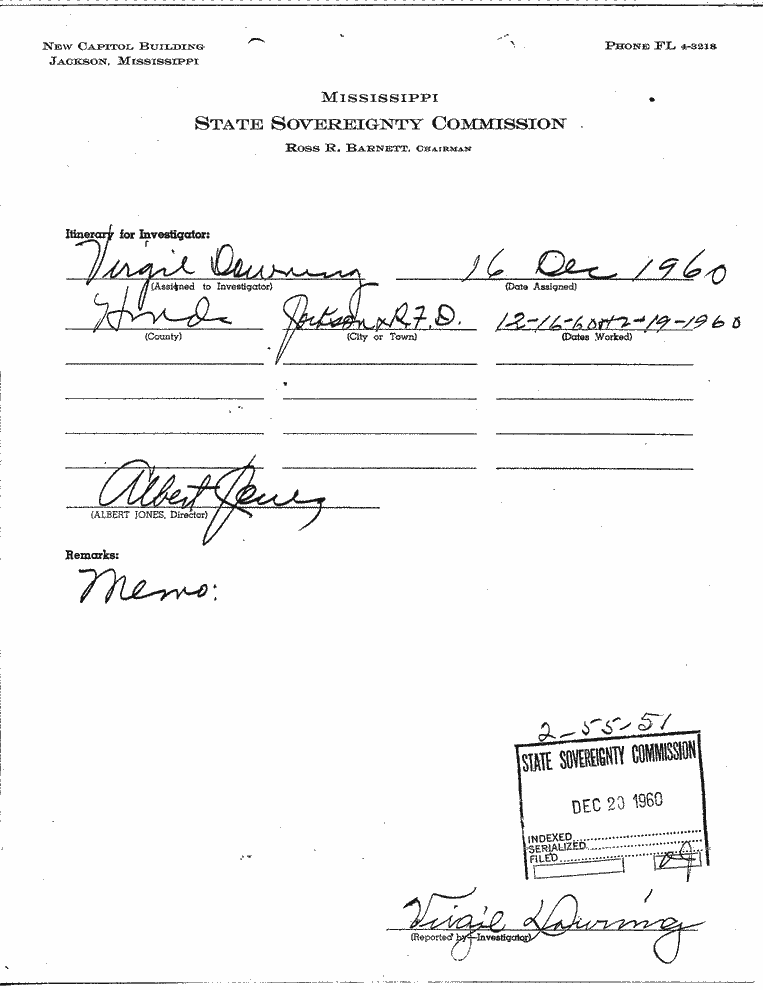 NEW CAPITOL BUILDING
JACKSON, MISSISSIPPI
PHONE FL 4-3218
MISSISSIPPI
STATE SOVEREIGNTY COMMISSION
ROSS R. BARNETT, CHAIRMAN
Itinerary for Investigator:
Virgil Downing 16 Dec 1960
(Assigned to Investigator) (Date Assigned)
Hinds Jackson & R.F.D. 12-16-60 12-19-1960
(County) (City or Town) (Dates Worked)
Albert Jones
(ALBERT JONES, Director)
Remarks:
Memo:
2-55-51
STATE SOVEREIGNTY COMMISSION
DEC 20 1960
INDEXED
SERIALIZED
FILED
Virgil Downing
(Reported by—Investigator)